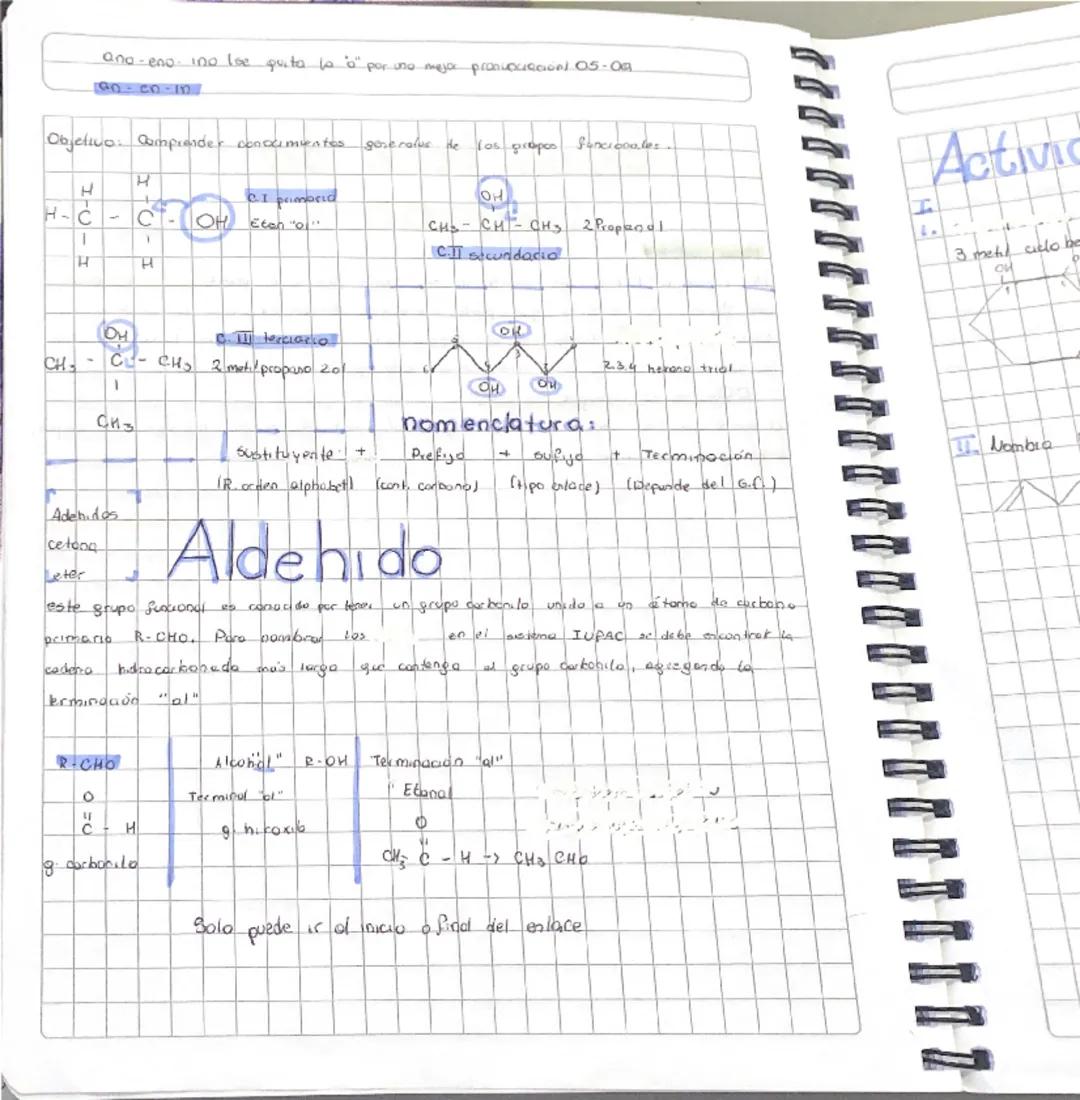 ano-eno-ino (se quita la "o" por una mejor pronunciación) 05-09
an-en-in
Objetivo: Comprender conocimientos generales de los grupos funcionales.
H H
H-C-C-OH
H H
C.I primario
Etan "ol"
OH
CH3-CH-CH3 2 Propanol
C.II secundario
OH
CH3-C-CH3
CH3
C.III terciario
2 metil propano 2 ol
OH
OH OH
2.3.4 hexano triol
nomenclatura:
Sustituyente + Prefijo + sufijo + Terminación
(R. orden alphabet) (cant. carbono) (tipo enlace) (Depende del G.F.)
Adehidos
cetona
eter
Aldehido
este grupo funcional es conocido por tener un grupo carbonilo unido a un átomo de carbono
primario R-CHO. Para nombrar los en el sistema IUPAC se debe encontrar la
cadena hidrocarbonada más larga que contenga al grupo carbonilo, agregando la
terminación "al"
R-CHO
O
C-H
g. carbonilo
Alcohol" R-OH
Terminal "ol"
g. hiroxilo
Terminación "al"
" Etanal
O
CH3 C-H -> CH3 CHO
Solo puede ir al inicio o final del enlace
Activid
I.
1.
3 metil ciclo
OH
II. Nombra